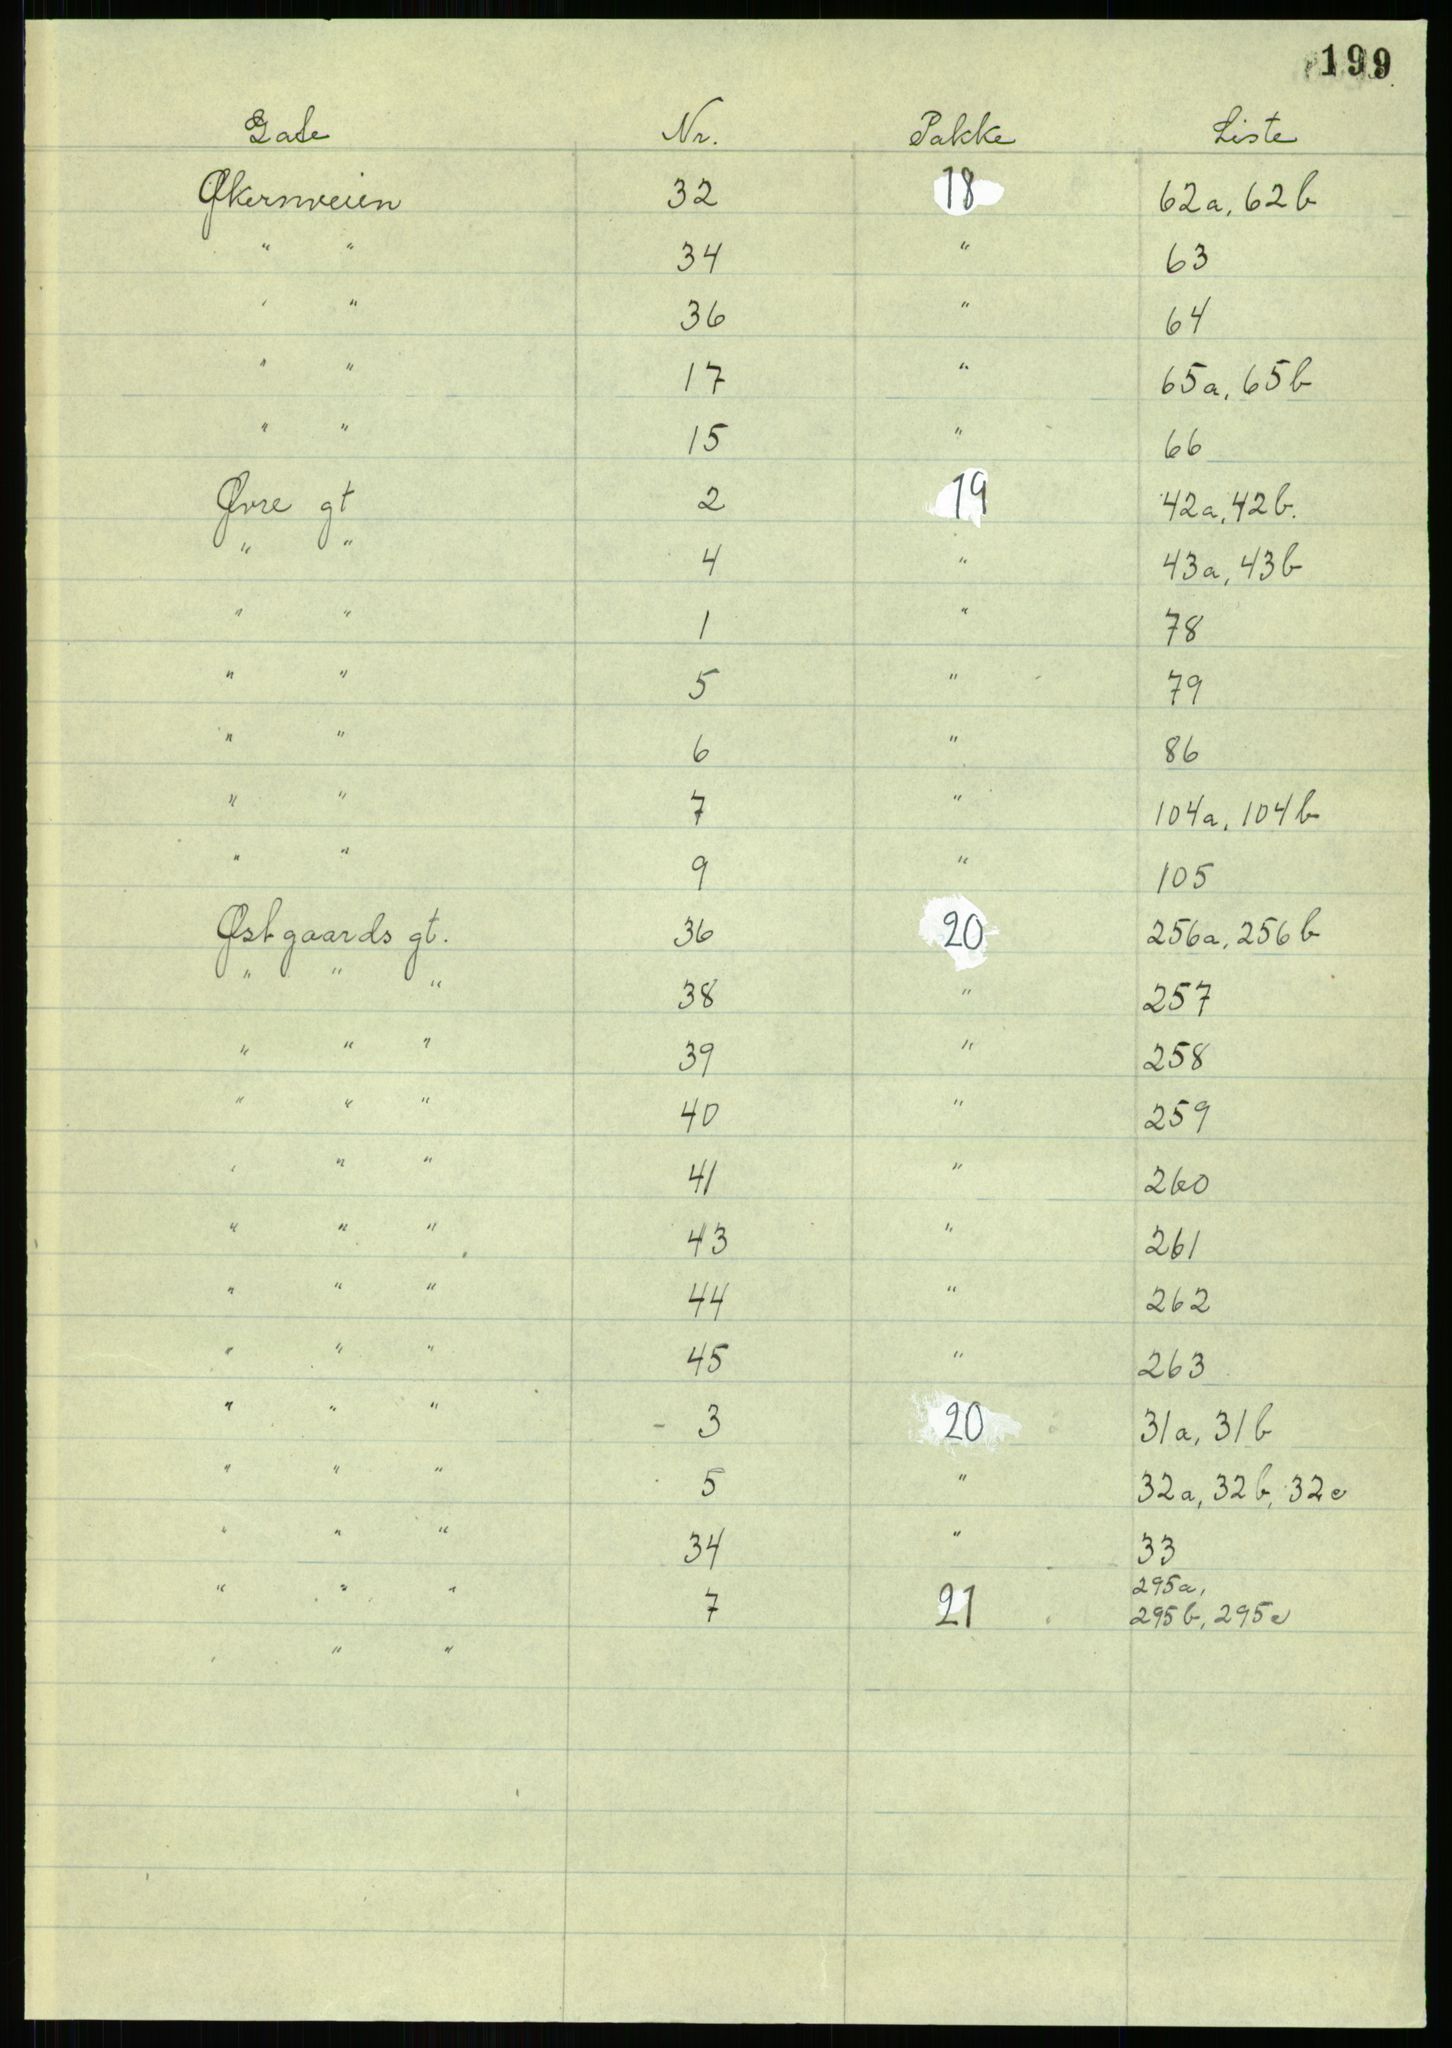 199
Gate Nr. Pakke Liste
Økernveien 32 18 62a, 62b
" " 34 " 63
" " 36 " 64
" " 17 " 65a, 65b
" " 15 " 66
Øvre gt 2 19 42a, 42b.
" " 4 " 43a, 43b
" " 1 " 78
" " 5 " 79
" " 6 " 86
" " 7 " 104a, 104b
" " 9 " 105
Østgaards gt. 36 20 256a, 256b
" " " 38 " 257
" " " 39 " 258
" " " 40 " 259
" " " 41 " 260
" " " 43 " 261
" " " 44 " 262
" " " 45 " 263
" " " 3 20 31a, 31b
" " " 5 " 32a, 32b, 32c
" " " 34 " 33
" " " 7 21 295a,
295b, 295c
" " "